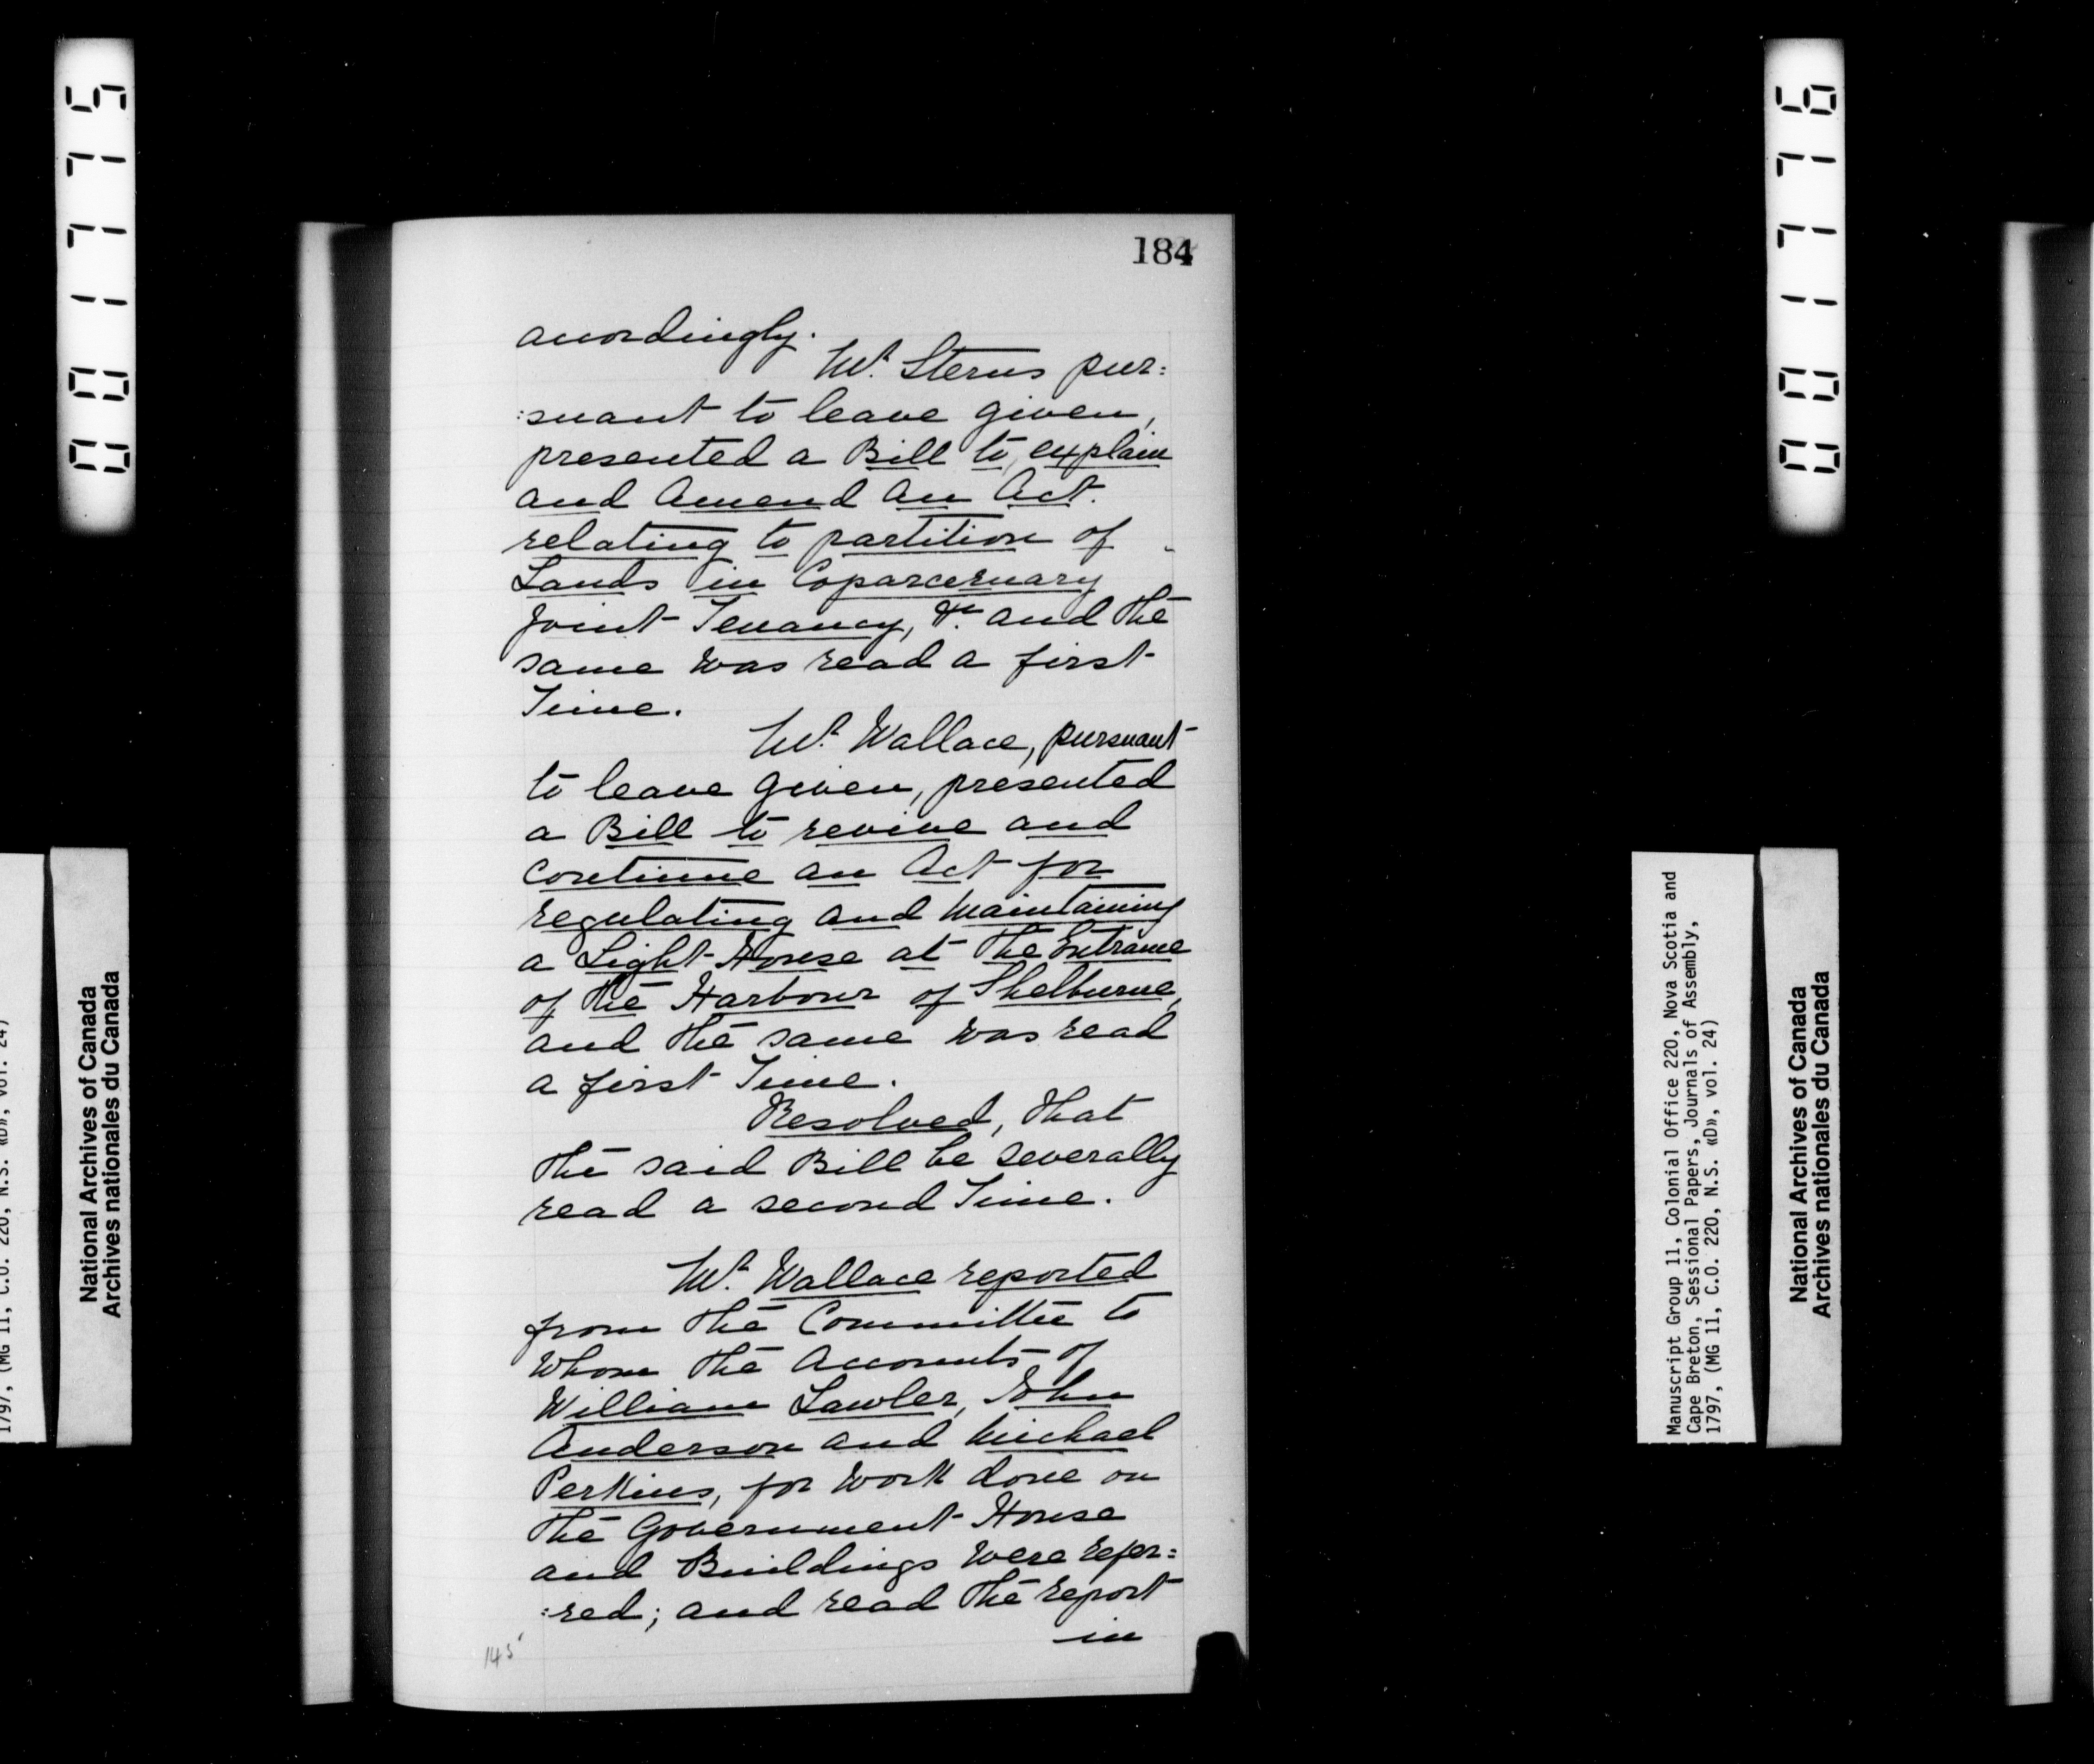 001775
001776
184
accordingly.
Mr. Sterns pur=
=suant to leave given,
presented a Bill to explain
and Amend An Act
relating to partition of
Lands in Coparcernary
Joint Tenancy, &c. and the
same was read a first
Time.
Mr. Wallace, pursuant
to leave given, presented
a Bill to revive and
continue an Act for
regulating and Maintaining
a Light-House at the Entrance
of the Harbour of Shelburne,
and the same was read
a first Time.
Resolved, that
the said Bill be severally
read a second Time.
Mr. Wallace reported
from the Committee to
Whom the Accounts of
William Lawler, John
Anderson and Michael
Perkins, for Work done on
the Government House
and Buildings Were refer=
=red; and read the report
in
145
1797, (MG 11, C.O. 220, N.S. «D», vol. 24)
National Archives of Canada
Archives nationales du Canada
Manuscript Group 11, Colonial Office 220, Nova Scotia and
Cape Breton, Sessional Papers, Journals of Assembly,
1797, (MG 11, C.O. 220, N.S. «D», vol. 24)
National Archives of Canada
Archives nationales du Canada